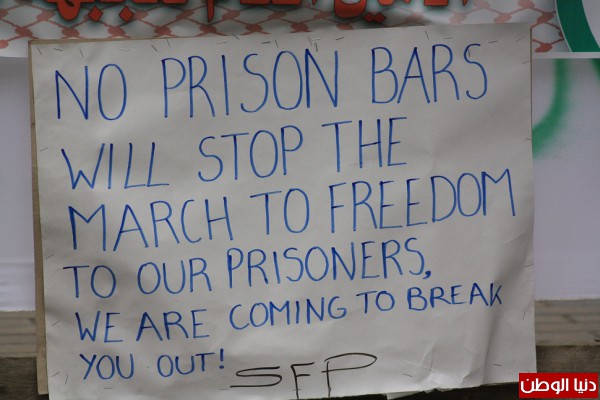 NO PRISON BARS
WILL STOP THE
MARCH TO FREEDOM
TO OUR PRISONERS,
WE ARE COMING TO BREAK
YOU OUT!
SFP
دنيا الوطن